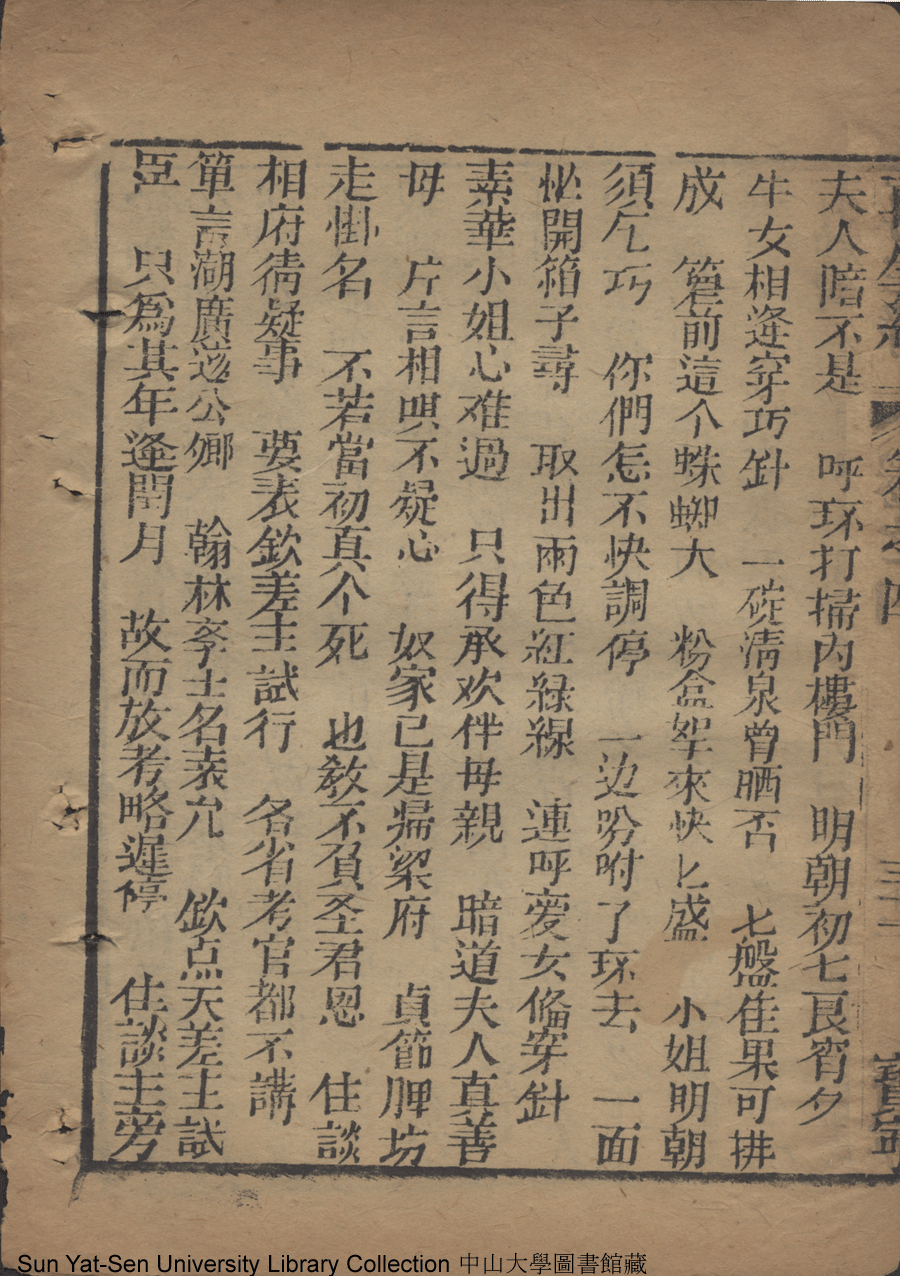 再生緣 卷之四 三十 寶寧
夫人暗不是 呼环打掃內樓門 明朝初七良宵夕
牛女相逢穿巧針 一碗清泉曾晒否 七盤佳果可排
成 簷前這个蛛蜘大 粉盒拏來快匕盛 小姐明朝
須乞巧 你們怎不快調停 一边吩咐了环去 一面
忙開箱子尋 取出兩色紅綠線 連呼爱女俻穿針
素華小姐心难過 只得承欢伴母親 暗道夫人真善
母 片言相哄不疑心 奴家已是歸梁府 貞節牌坊
走掛名 不若當初真个死 也教不負圣君恩 住談
相府猜疑事 要表欽差主試行 各省考官都不講
單言湖廣这公卿 翰林李士名表允 欽点天差主試
臣 只爲其年逢閏月 故而放考略遲停 住談主旁
Sun Yat-Sen University Library Collection 中山大學圖書館藏